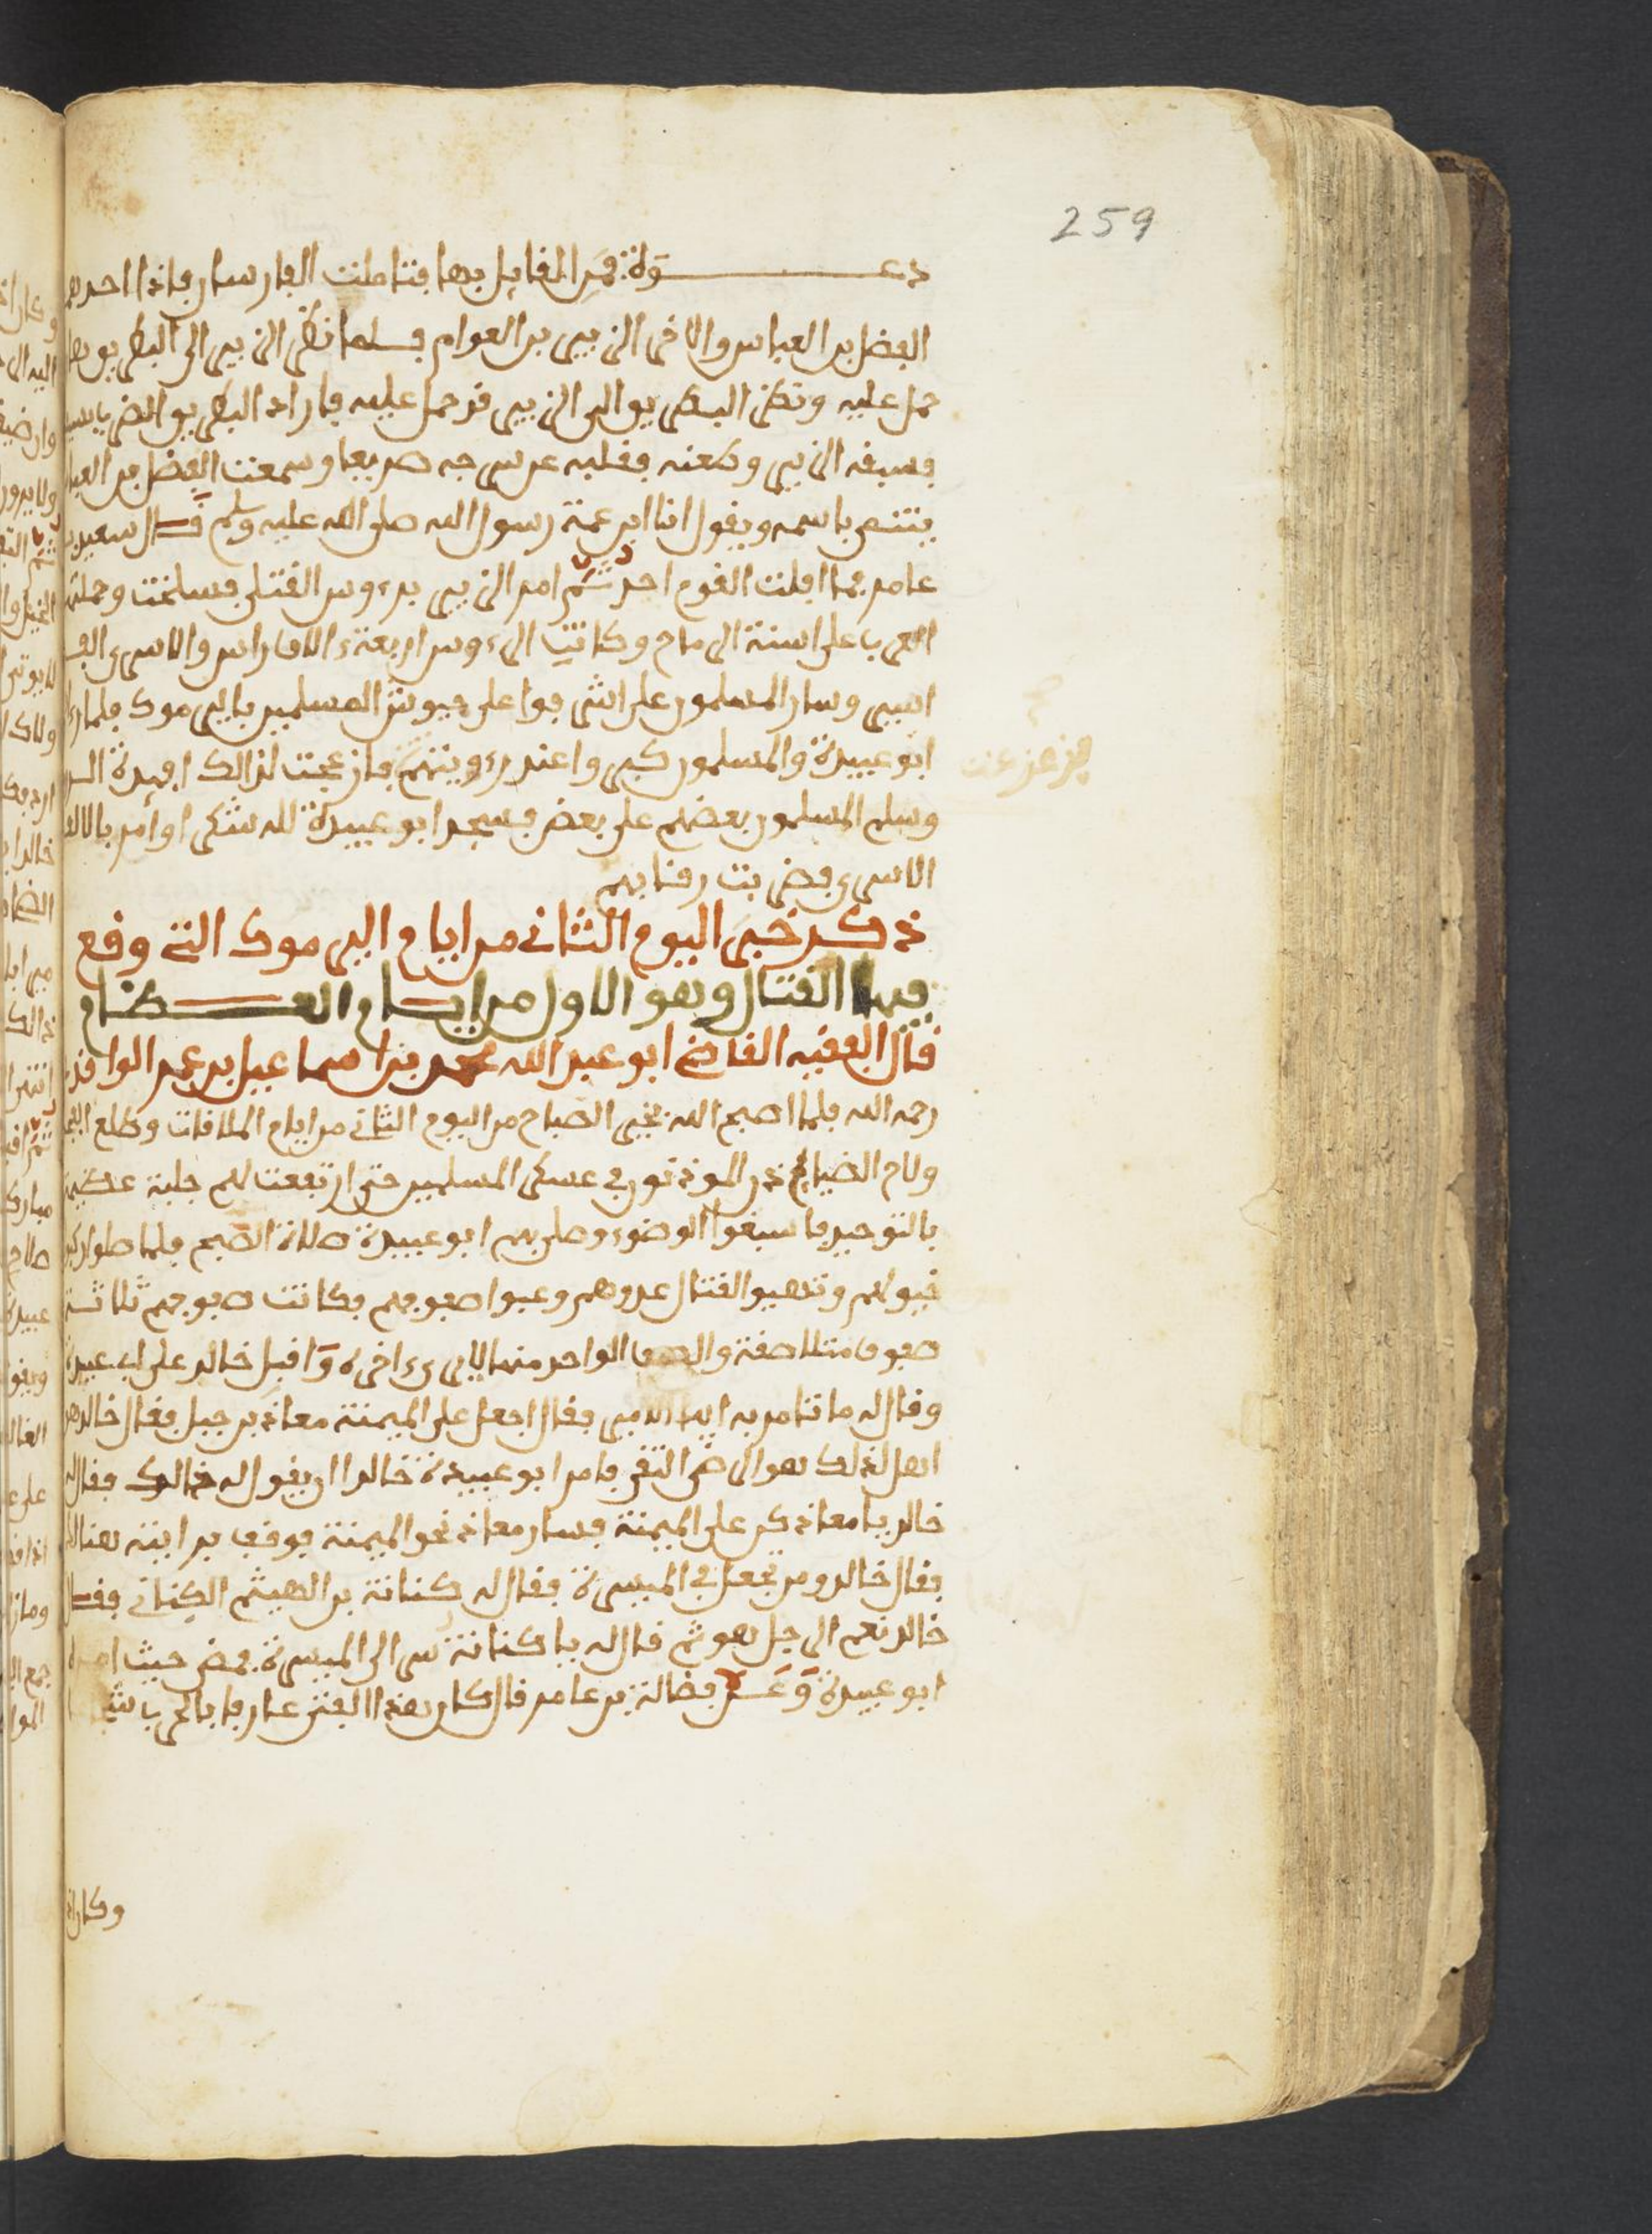 259
دعوة فمن القايل بها فتاملت الفارسان فاذا احدهم
الفضل بن العباس والاخر الزبير بن العوام فلما نظر الزبير الى البطريق بها
حمل عليه ونظر البطريق الى الزبير قد حمل عليه فاراد البطريق الضرب بالسيف
فسبقه الزبير وطعنه فقلبه عن سرجه صريعا وسمعت الفضل بن العباس
ينتمى باسمه ويقول انا ابن عمة رسول الله صلى الله عليه وسلم قال سعيد بن
عامر فما افلت القوم احد ثم امر الزبير برءوس القتلى فسلخت وحملتها
العرب على اسنة الرماح وكانت الرءوس اربعة ءالاف راس والاسرى الف
اسير وسار المسلمون على اشرفوا على جيوش المسلمين باليرموك فلما رءا
ابو عبيدة والمسلمون كبر واعند رءويتهم فازعجت لذالك افيدة الروم
وسلم المسلمون بعضهم على بعض فسجد ابو عبيدة لله شكرا وأمر بالالف
الاسرى فضربت رقابهم
ذكر خبر اليوم الثاني من ايام اليرموك التي وقع
فيها القتال وهو الاول من ايام العظام
قال الفقيه القاضي ابو عبد الله محمد بن اسماعيل بن عمر الواقدي
رحمه الله فلما اصبح الله بخير الصباح من اليوم الثاني من ايام الملاقات وطلع الفجر
ولاح الضياء اذن الموذنون في عسكر المسلمين حتى ارتفعت لهم جلبة عظيمة
بالتوحيد فاسبغوا الوضوء وصلى بهم ابو عبيدة صلاة الصبح فلما صلوا ركبوا
خيولهم وتهيوا لقتال عدوهم وعبوا صفوفهم فكانت صفوفهم ثلاثة
صفوف متلاصقة والصف الواحد منها لا يرى ءاخره وَاقبل خالد على ابي عبيدة
وقال له ما تامر به ايها الامير فقال اجعل على الميمنة معاذ بن جبل فقال خالد هو
اهل لذلك هو الرضى التقى فامر ابو عبيدة خالدا ان يقول له ذالك فقال له
خالد يا معاذ كن على الميمنة فسار معاذ نحو الميمنة فوقف برايته هنالك
فقال خالد ومن نجعل في الميسرة فقال له كنانة بن الهيثم الكناني فقال
خالد نعم الرجل هو ثم قال له يا كنانة سر الى الميسرة فمضى حيث امره
ابو عبيدة وعن فضالة بن عامر قال كان هذا الفتى عارفا بالحرب
وكان اذا